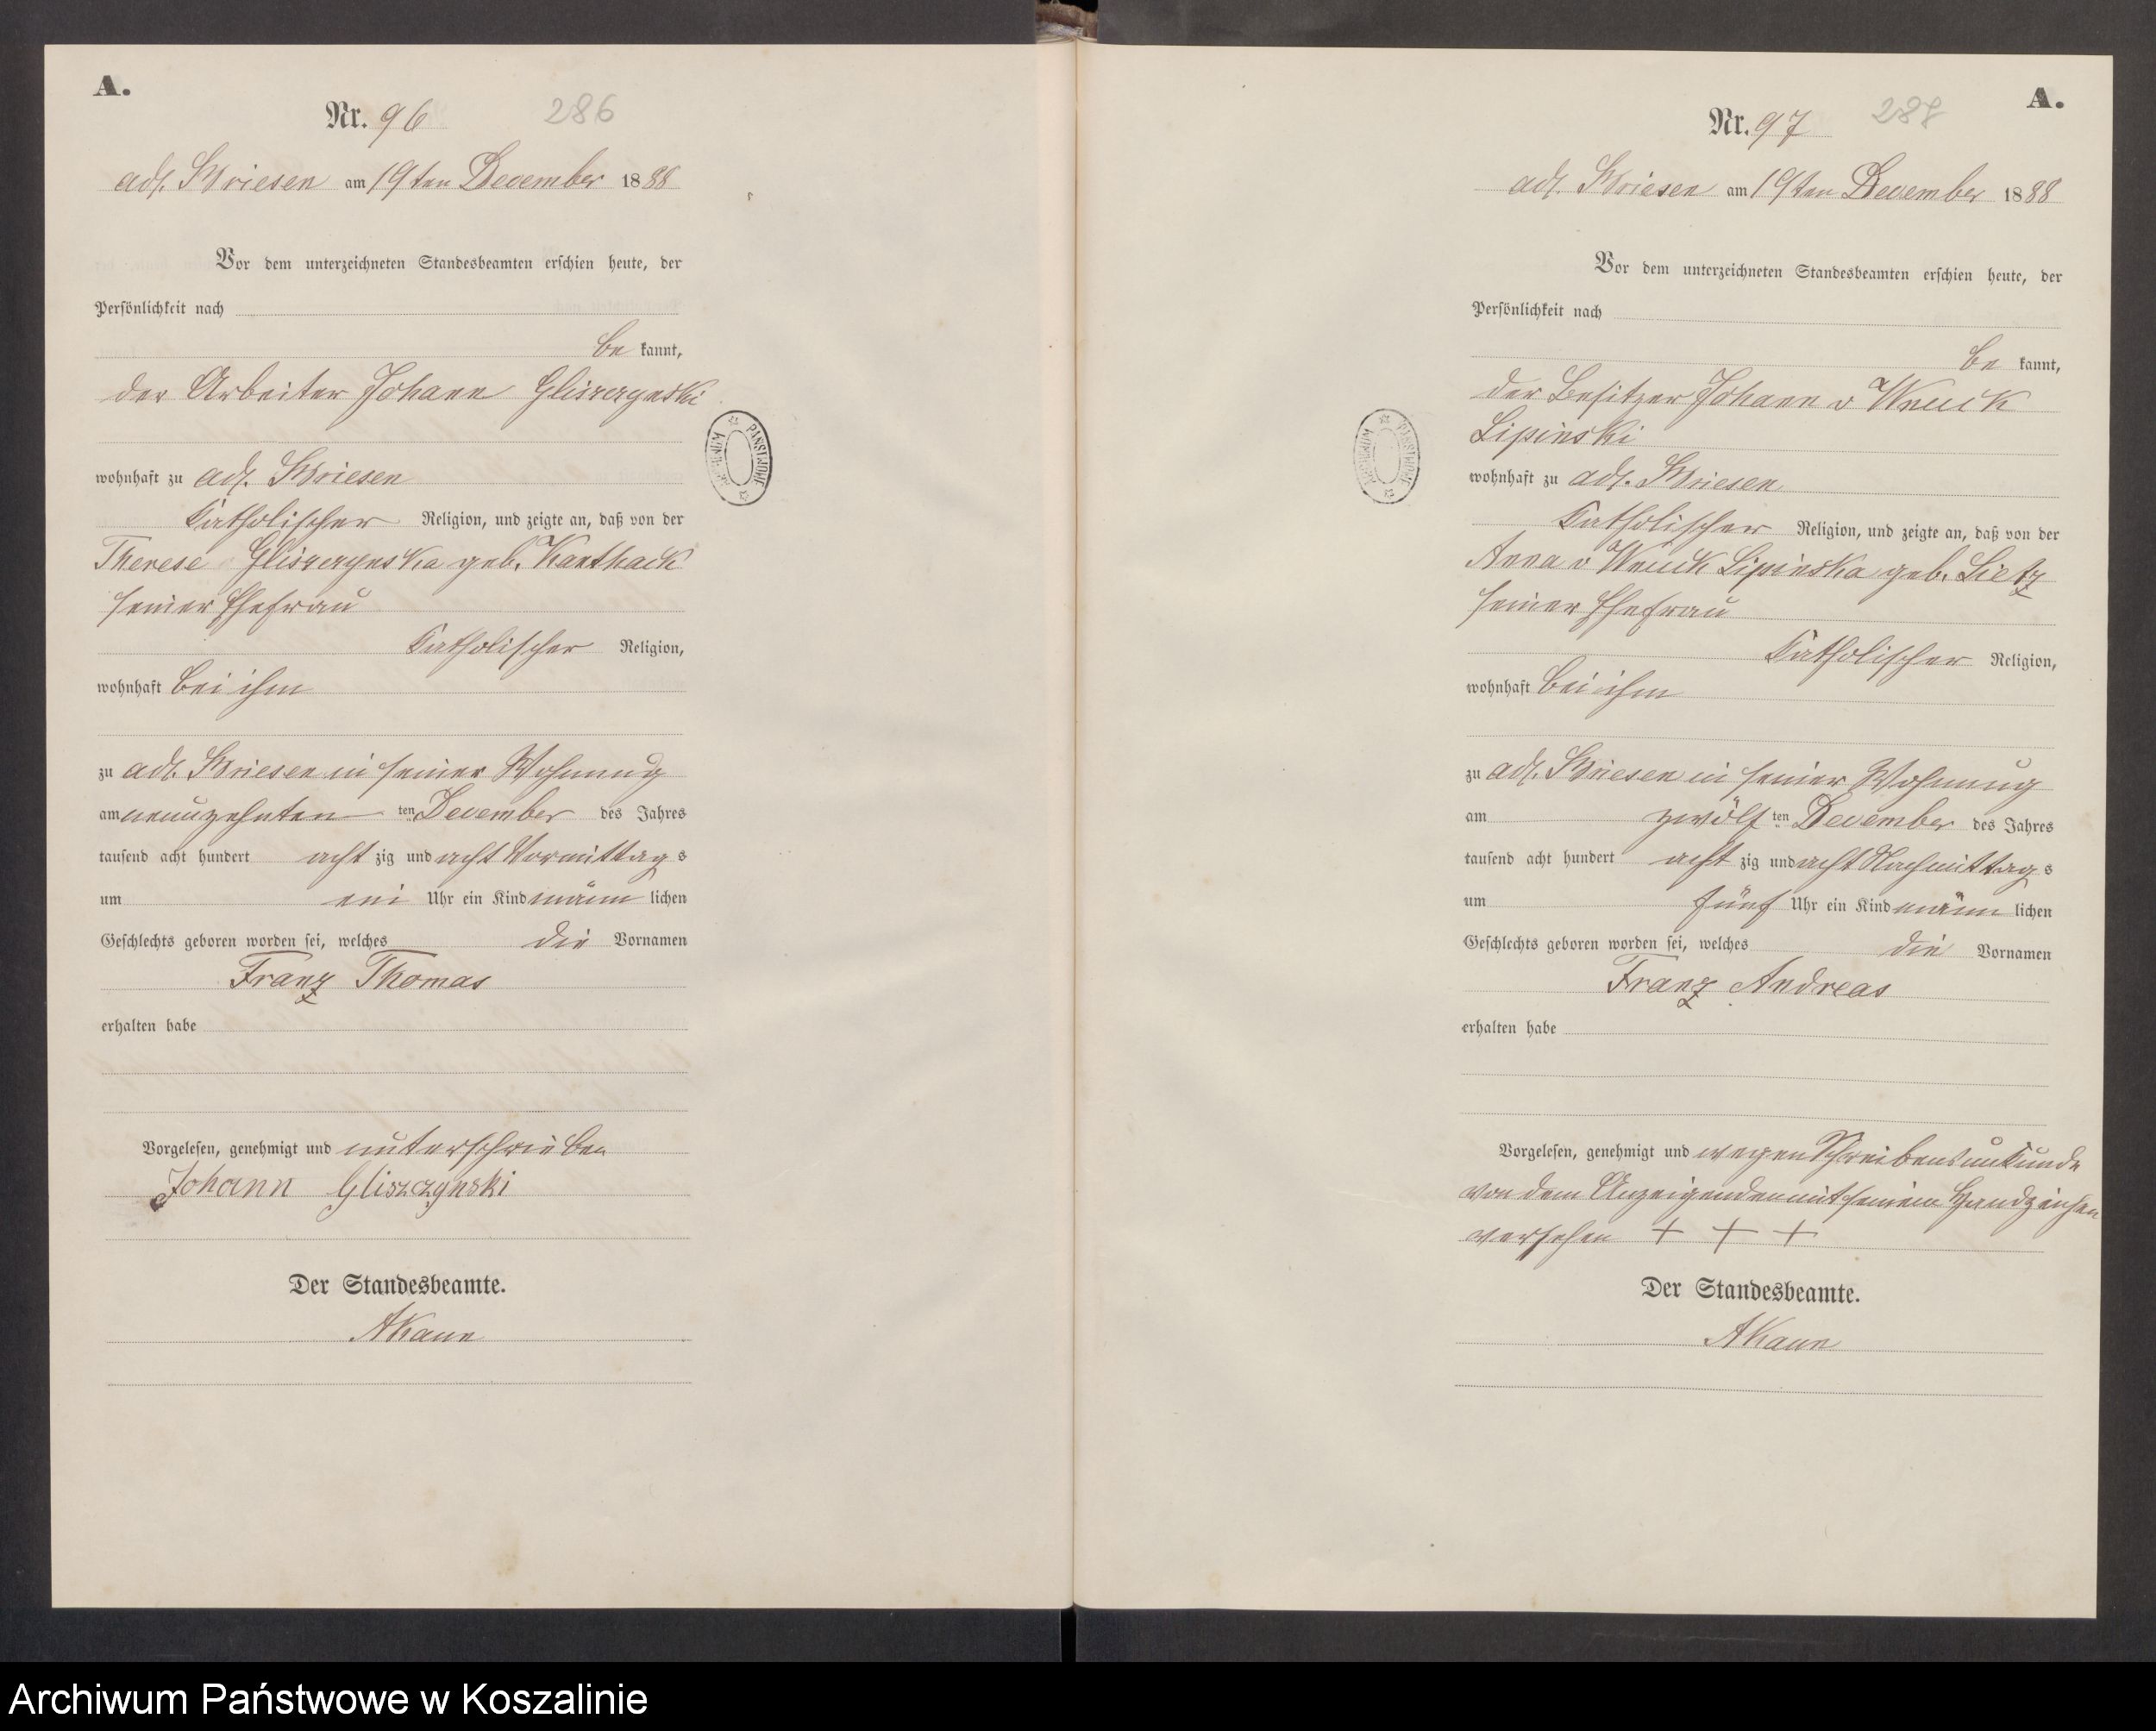 A.
Nr. 96
286
adl. Briesen am 19ten December 1888
Vor dem unterzeichneten Standesbeamten erschien heute, der
Persönlichkeit nach
be kannt,
der Arbeiter Johann Gliszczynski
wohnhaft zu adl. Briesen
katholischer Religion, und zeigte an, daß von der
Therese Gliszczynska geb. Kanthack
seiner Ehefrau
katholischer Religion,
wohnhaft bei ihm
zu adl. Briesen in seiner Wohnung
am neunzehnten ten December des Jahres
tausend acht hundert acht zig und acht Vormittag s
um ein Uhr ein Kind männ lichen
Geschlechts geboren worden sei, welches die Vornamen
Franz Thomas
erhalten habe
Vorgelesen, genehmigt und unterschrieben
Johann Gliszczynski
Der Standesbeamte.
AKaun
ARCHIWUM PAŃSTWOWE
A.
Nr. 97
287
adl. Briesen am 19ten December 1888
Vor dem unterzeichneten Standesbeamten erschien heute, der
Persönlichkeit nach
be kannt,
der Besitzer Johann v Wnuck
Lipinski
wohnhaft zu adl. Briesen
katholischer Religion, und zeigte an, daß von der
Anna v Wnuck Lipinska geb. Lietz
seiner Ehefrau
katholischer Religion,
wohnhaft bei ihm
zu adl. Briesen in seiner Wohnung
am zwölf ten December des Jahres
tausend acht hundert acht zig und acht Nachmittag s
um fünf Uhr ein Kind männ lichen
Geschlechts geboren worden sei, welches die Vornamen
Franz Andreas
erhalten habe
Vorgelesen, genehmigt und wegen Schreibensunkunde
von dem Anzeigenden mit seinem Handzeichen
versehen + + +
Der Standesbeamte.
AKaun
ARCHIWUM PAŃSTWOWE
Archiwum Państwowe w Koszalinie